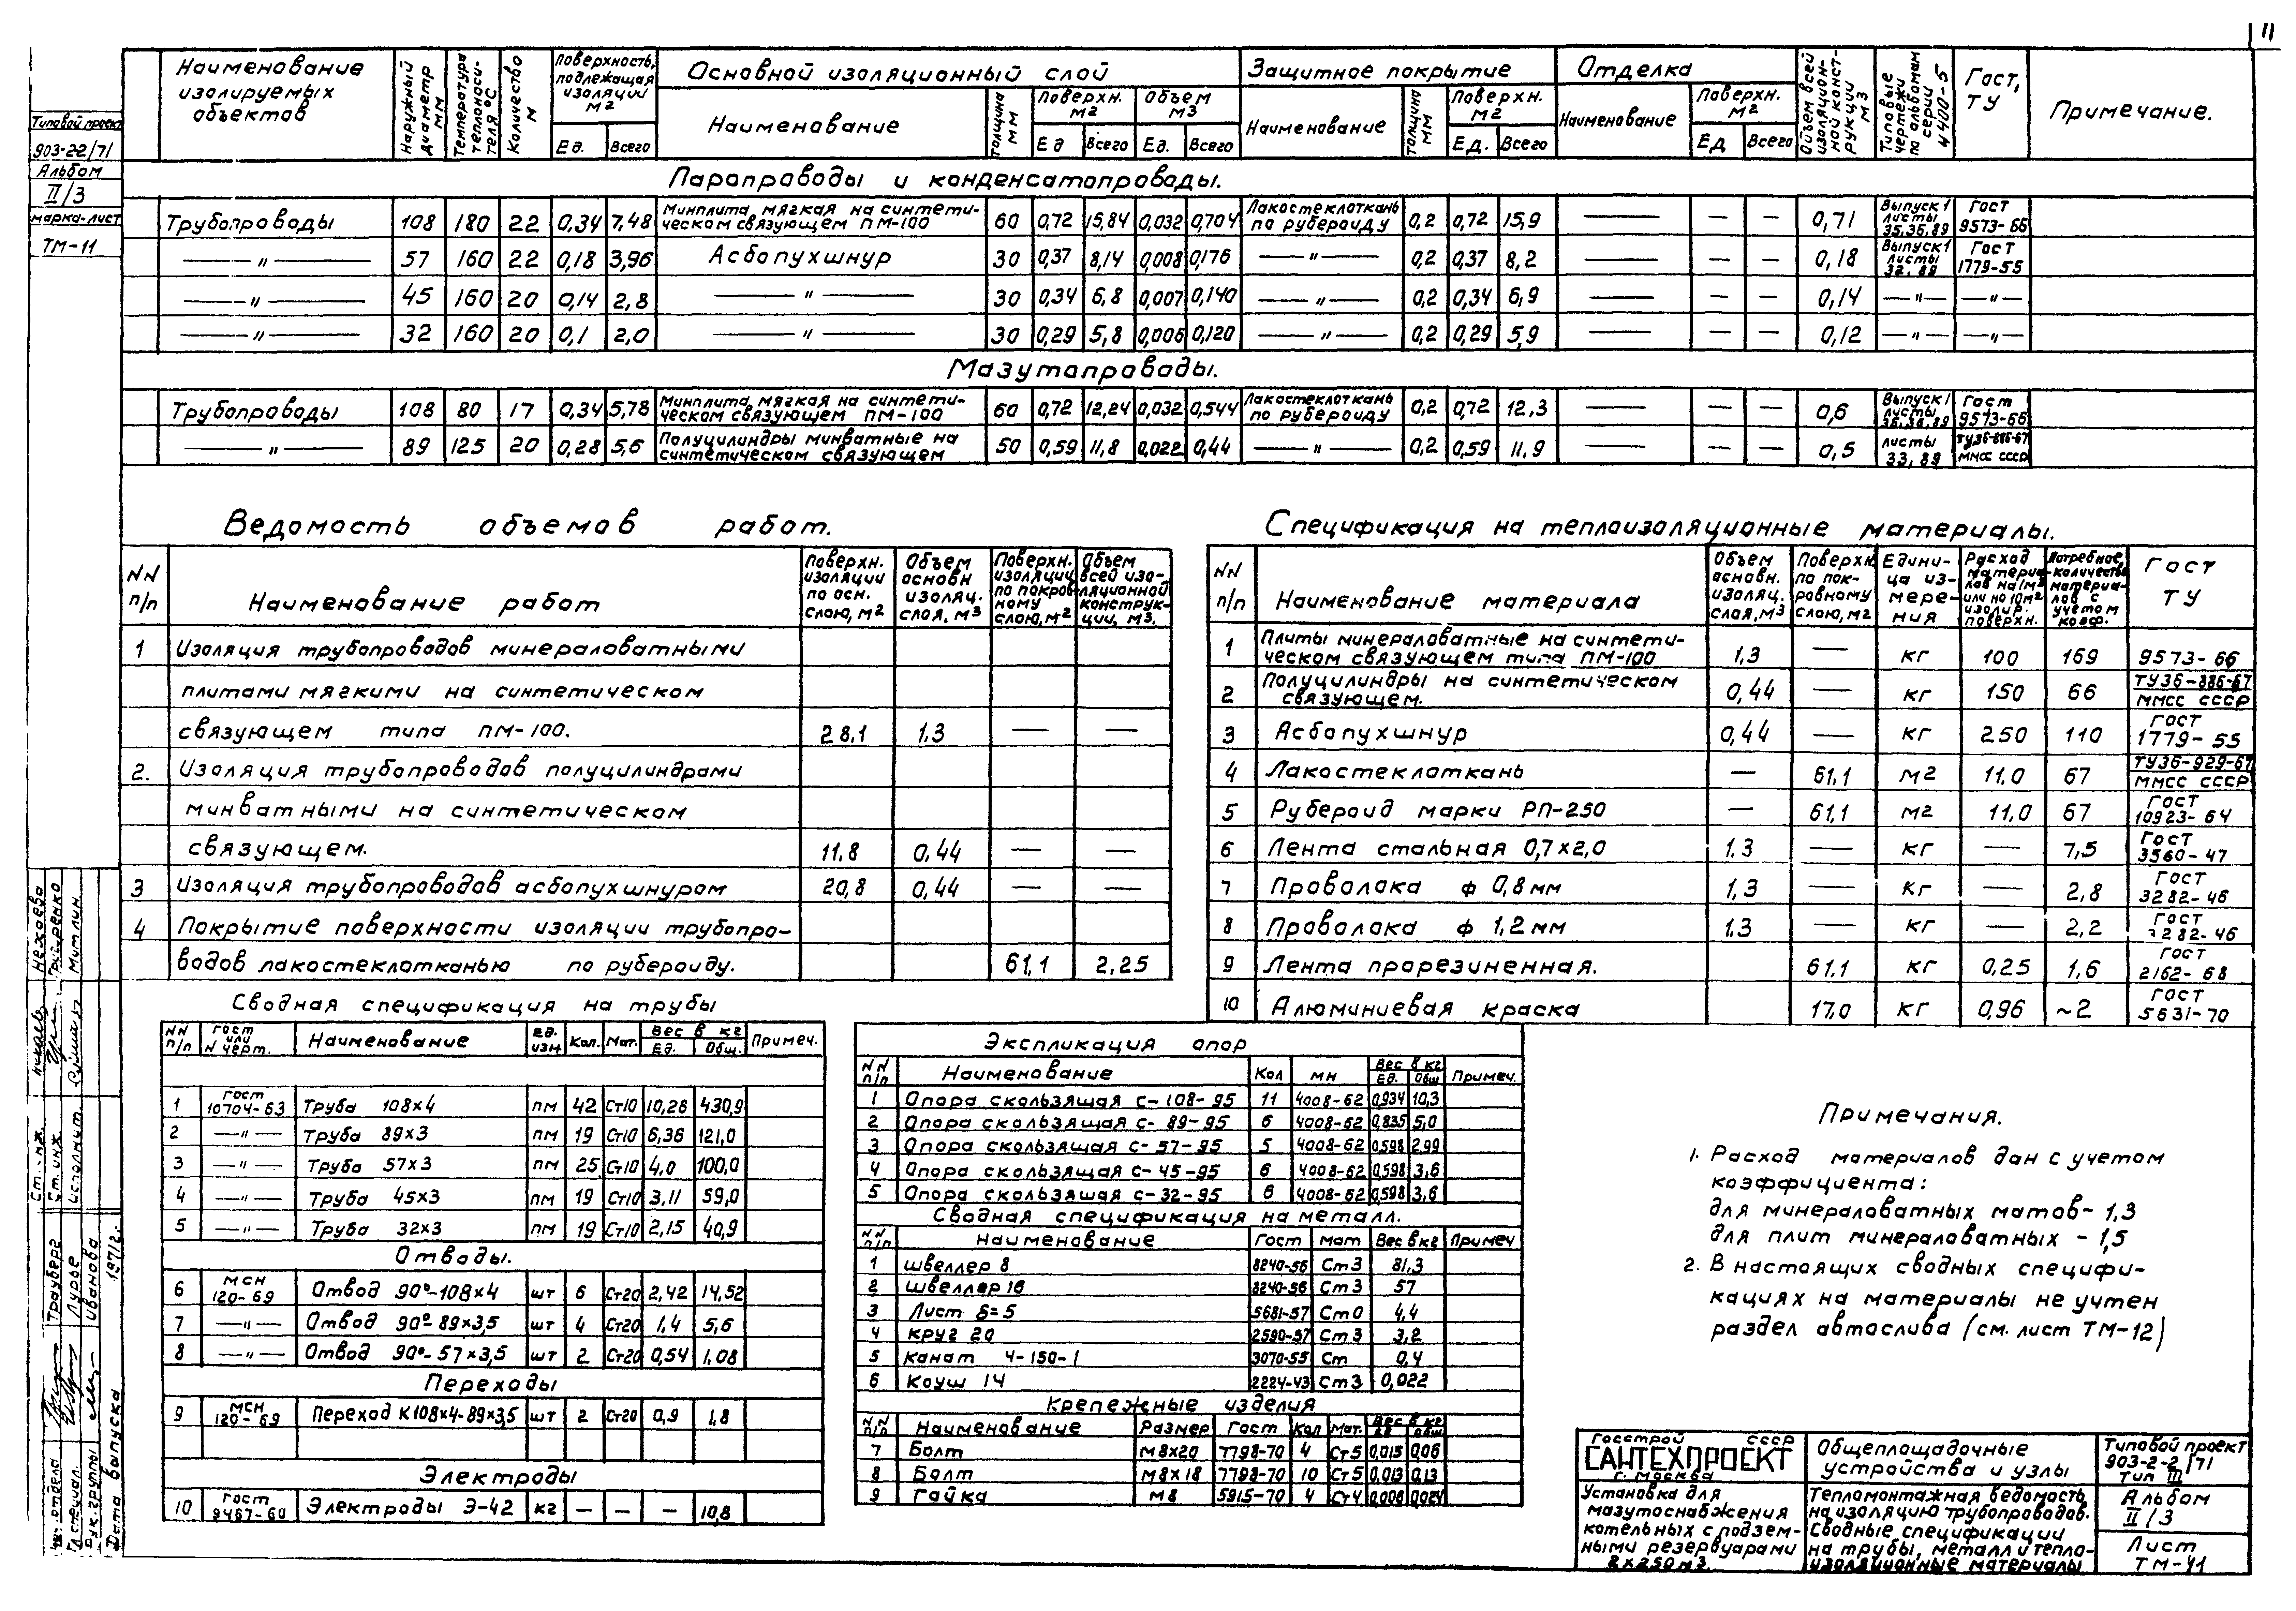 11
Типовой проект
903-2-2/71
Альбом
II/3
марка-лист
ТМ-11
Наименование изолируемых объектов | Наружный диаметр мм | Температура теплоносителя °С | Количество м | Поверхность, подлежащая изоляции м2 Ед. Всего | Основной изоляционный слой: Наименование | Толщина мм | Поверхн. м2 Ед Всего | Объем м3 Ед. Всего | Защитное покрытие: Наименование | Толщина мм | Поверхн. м2 Ед. Всего | Отделка: Наименование | Поверхн. м2 Ед Всего | Объем всей изоляционной конструкции м3 | Типовые чертежи по альбомам серии 4400-5 | Гост, ТУ | Примечание.
Паропроводы и конденсатопроводы.
Трубопроводы 108 180 22 0,34 7,48 Минплита мягкая на синтетическом связующем ПМ-100 60 0,72 15,84 0,032 0,704 Лакостеклоткань по рубероиду 0,2 0,72 15,9 — — — 0,71 Выпуск 1 листы 35,36,89 Гост 9573-66
—"— 57 160 22 0,18 3,96 Асбопухшнур 30 0,37 8,14 0,008 0,176 —"— 0,2 0,37 8,2 — — — 0,18 Выпуск 1 листы 32,89 Гост 1779-55
—"— 45 160 20 0,14 2,8 —"— 30 0,34 6,8 0,007 0,140 —"— 0,2 0,34 6,9 — — — 0,14 —"— —"—
—"— 32 160 20 0,1 2,0 —"— 30 0,29 5,8 0,006 0,120 —"— 0,2 0,29 5,9 — — — 0,12 —"— —"—
Мазутопроводы.
Трубопроводы 108 80 17 0,34 5,78 Минплита мягкая на синтетическом связующем ПМ-100 60 0,72 12,24 0,032 0,544 Лакостеклоткань по рубероиду 0,2 0,72 12,3 — — — 0,6 Выпуск 1 листы 35,36,89 Гост 9573-66
—"— 89 125 20 0,28 5,6 Полуцилиндры минватные на синтетическом связующем 50 0,59 11,8 0,022 0,44 —"— 0,2 0,59 11,9 — — — 0,5 листы 33,89 ТУ36-886-67 ММСС СССР
Ведомость объемов работ.
NN п/п | Наименование работ | Поверхн. изоляции по осн. слою, м2 | Объем основн изоляц. слоя, м3 | Поверхн. изоляции по покровному слою, м2 | Объем всей изоляционной конструкции, м3.
1 Изоляция трубопроводов минераловатными
плитами мягкими на синтетическом
связующем типа ПМ-100. 28,1 1,3 — —
2. Изоляция трубопроводов полуцилиндрами
минватными на синтетическом
связующем. 11,8 0,44 — —
3 Изоляция трубопроводов асбопухшнуром 20,8 0,44 — —
4 Покрытие поверхности изоляции трубопро-
водов лакостеклотканью по рубероиду. 61,1 2,25
Спецификация на теплоизоляционные материалы.
NN п/п | Наименование материала | Объем основн. изоляц. слоя, м3 | Поверхн по покровному слою, м2 | Единица измерения | Расход материалов на 1м3 или на 10м2 изолир. поверхн. | Потребное количество материалов с учетом коэф. | Гост ТУ
1 Плиты минераловатные на синтетическом связующем типа ПМ-100 1,3 — кг 100 169 9573-66
2 Полуцилиндры на синтетическом связующем. 0,44 — кг 150 66 ТУ36-886-67 ММСС СССР
3 Асбопухшнур 0,44 — кг 250 110 Гост 1779-55
4 Лакостеклоткань — 61,1 м2 11,0 67 ТУ36-929-67 ММСС СССР
5 Рубероид марки РП-250 — 61,1 м2 11,0 67 Гост 10923-64
6 Лента стальная 0,7×2,0 1,3 — кг — 7,5 Гост 3560-47
7 Проволока ф 0,8мм 1,3 — кг — 2,8 Гост 3282-46
8 Проволока ф 1,2мм 1,3 — кг — 2,2 Гост 3282-46
9 Лента прорезиненная. 61,1 кг 0,25 1,6 Гост 2162-68
10 Алюминиевая краска 17,0 кг 0,96 ~2 Гост 5631-70
Сводная спецификация на трубы
NN п/п | Гост или N черт. | Наименование | Ед. изм | Кол. | Мат. | Вес в кг Ед. Общ. | Примеч.
1 Гост 10704-63 Труба 108×4 пм 42 Ст10 10,26 430,9
2 —"— Труба 89×3 пм 19 Ст10 6,36 121,0
3 —"— Труба 57×3 пм 25 Ст10 4,0 100,0
4 —"— Труба 45×3 пм 19 Ст10 3,11 59,0
5 —"— Труба 32×3 пм 19 Ст10 2,15 40,9
Отводы.
6 МСН 120-69 Отвод 90°-108×4 шт 6 Ст20 2,42 14,52
7 —"— Отвод 90°-89×3,5 шт 4 Ст20 1,4 5,6
8 —"— Отвод 90°-57×3,5 шт 2 Ст20 0,54 1,08
Переходы
9 МСН 120-69 Переход К108×4-89×3,5 шт 2 Ст20 0,9 1,8
Электроды
10 Гост 9467-60 Электроды Э-42 кг — — — 10,8
Экспликация опор
NN п/п | Наименование | Кол | МН | Вес в кг Ед. Общ | Примеч.
1 Опора скользящая С-108-95 11 4008-62 0,934 10,3
2 Опора скользящая С-89-95 6 4008-62 0,835 5,0
3 Опора скользящая С-57-95 5 4008-62 0,598 2,99
4 Опора скользящая С-45-95 6 4008-62 0,598 3,6
5 Опора скользящая С-32-95 6 4008-62 0,598 3,6
Сводная спецификация на металл.
NN п/п | Наименование | Гост | Мат | Вес в кг | Примеч
1 швеллер 8 8240-56 Ст3 81,3
2 швеллер 16 8240-56 Ст3 57
3 Лист δ=5 5681-57 Ст0 4,4
4 круг 20 2590-57 Ст3 3,2
5 канат 4-150-1 3070-55 Ст 0,4
6 Коуш 14 2224-43 Ст3 0,022
Крепежные изделия
NN п/п | Наименование | Размер | Гост | Кол | Мат. | Вес в кг Ед Общ
7 Болт М8×20 7798-70 4 Ст5 0,015 0,06
8 Болт М8×18 7798-70 10 Ст5 0,013 0,13
9 Гайка М8 5915-70 4 Ст4 0,006 0,024
Примечания.
1. Расход материалов дан с учетом
коэффициента:
для минераловатных матов- 1,3
для плит минераловатных - 1,5
2. В настоящих сводных специфи-
кациях на материалы не учтен
раздел автослива (см. лист ТМ-12)
Госстрой СССР
САНТЕХПРОЕКТ
г. Москва
Установка для
мазутоснабжения
котельных с подзем-
ными резервуарами
2×250м3.
Общеплощадочные
устройства и узлы
Тепломонтажная ведомость
на изоляцию трубопроводов.
Сводные спецификации
на трубы, металл и тепло-
изоляционные материалы
Типовой проект
903-2-2/71
тип III
Альбом
II/3
Лист
ТМ-11
Нач. отдела Трауберг
Гл. специал. Лурье
Рук. группы Иванова
Дата выпуска 1971г.
Ст. инж. Нехаева
Ст. инж.
Исполнит. Митлин.